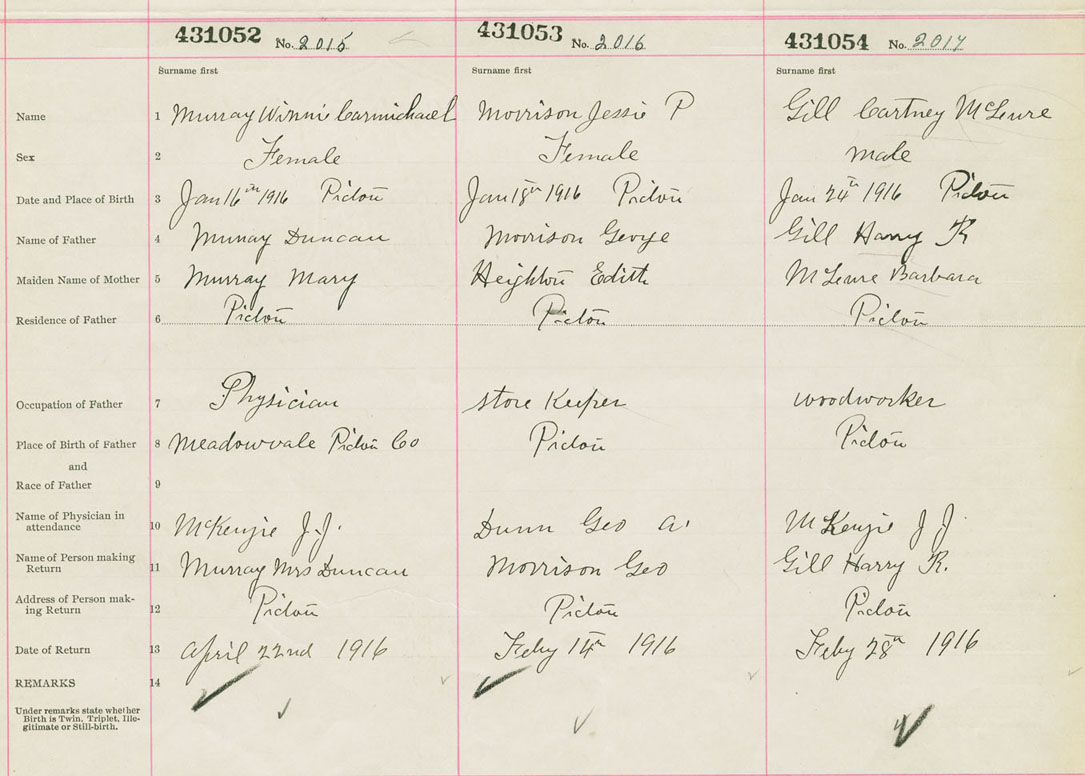 431052 No. 2015 431053 No. 2016 431054 No. 2017
Surname first Surname first Surname first
Name 1 Murray Winnie Carmichael Morrison Jessie P Gill Cartney McLeure
Sex 2 Female Female male
Date and Place of Birth 3 Jan 16th 1916 Pictou Jan 18th 1916 Pictou Jan 24th 1916 Pictou
Name of Father 4 Murray Duncan Morrison George Gill Harry R
Maiden Name of Mother 5 Murray Mary Heighton Edith McLeure Barbara
Residence of Father 6 Pictou Pictou Pictou
Occupation of Father 7 Physician store Keeper woodworker
Place of Birth of Father 8 Meadowvale Pictou Co Pictou Pictou
and
Race of Father 9
Name of Physician in
attendance 10 McKenzie J.J. Dunn Geo A. McKenzie J J
Name of Person making
Return 11 Murray Mrs Duncan Morrison Geo Gill Harry R.
Address of Person mak-
ing Return 12 Pictou Pictou Pictou
Date of Return 13 April 22nd 1916 Feby 14th 1916 Feby 28th 1916
REMARKS 14
Under remarks state whether
Birth is Twin, Triplet, Ille-
gitimate or Still-birth.